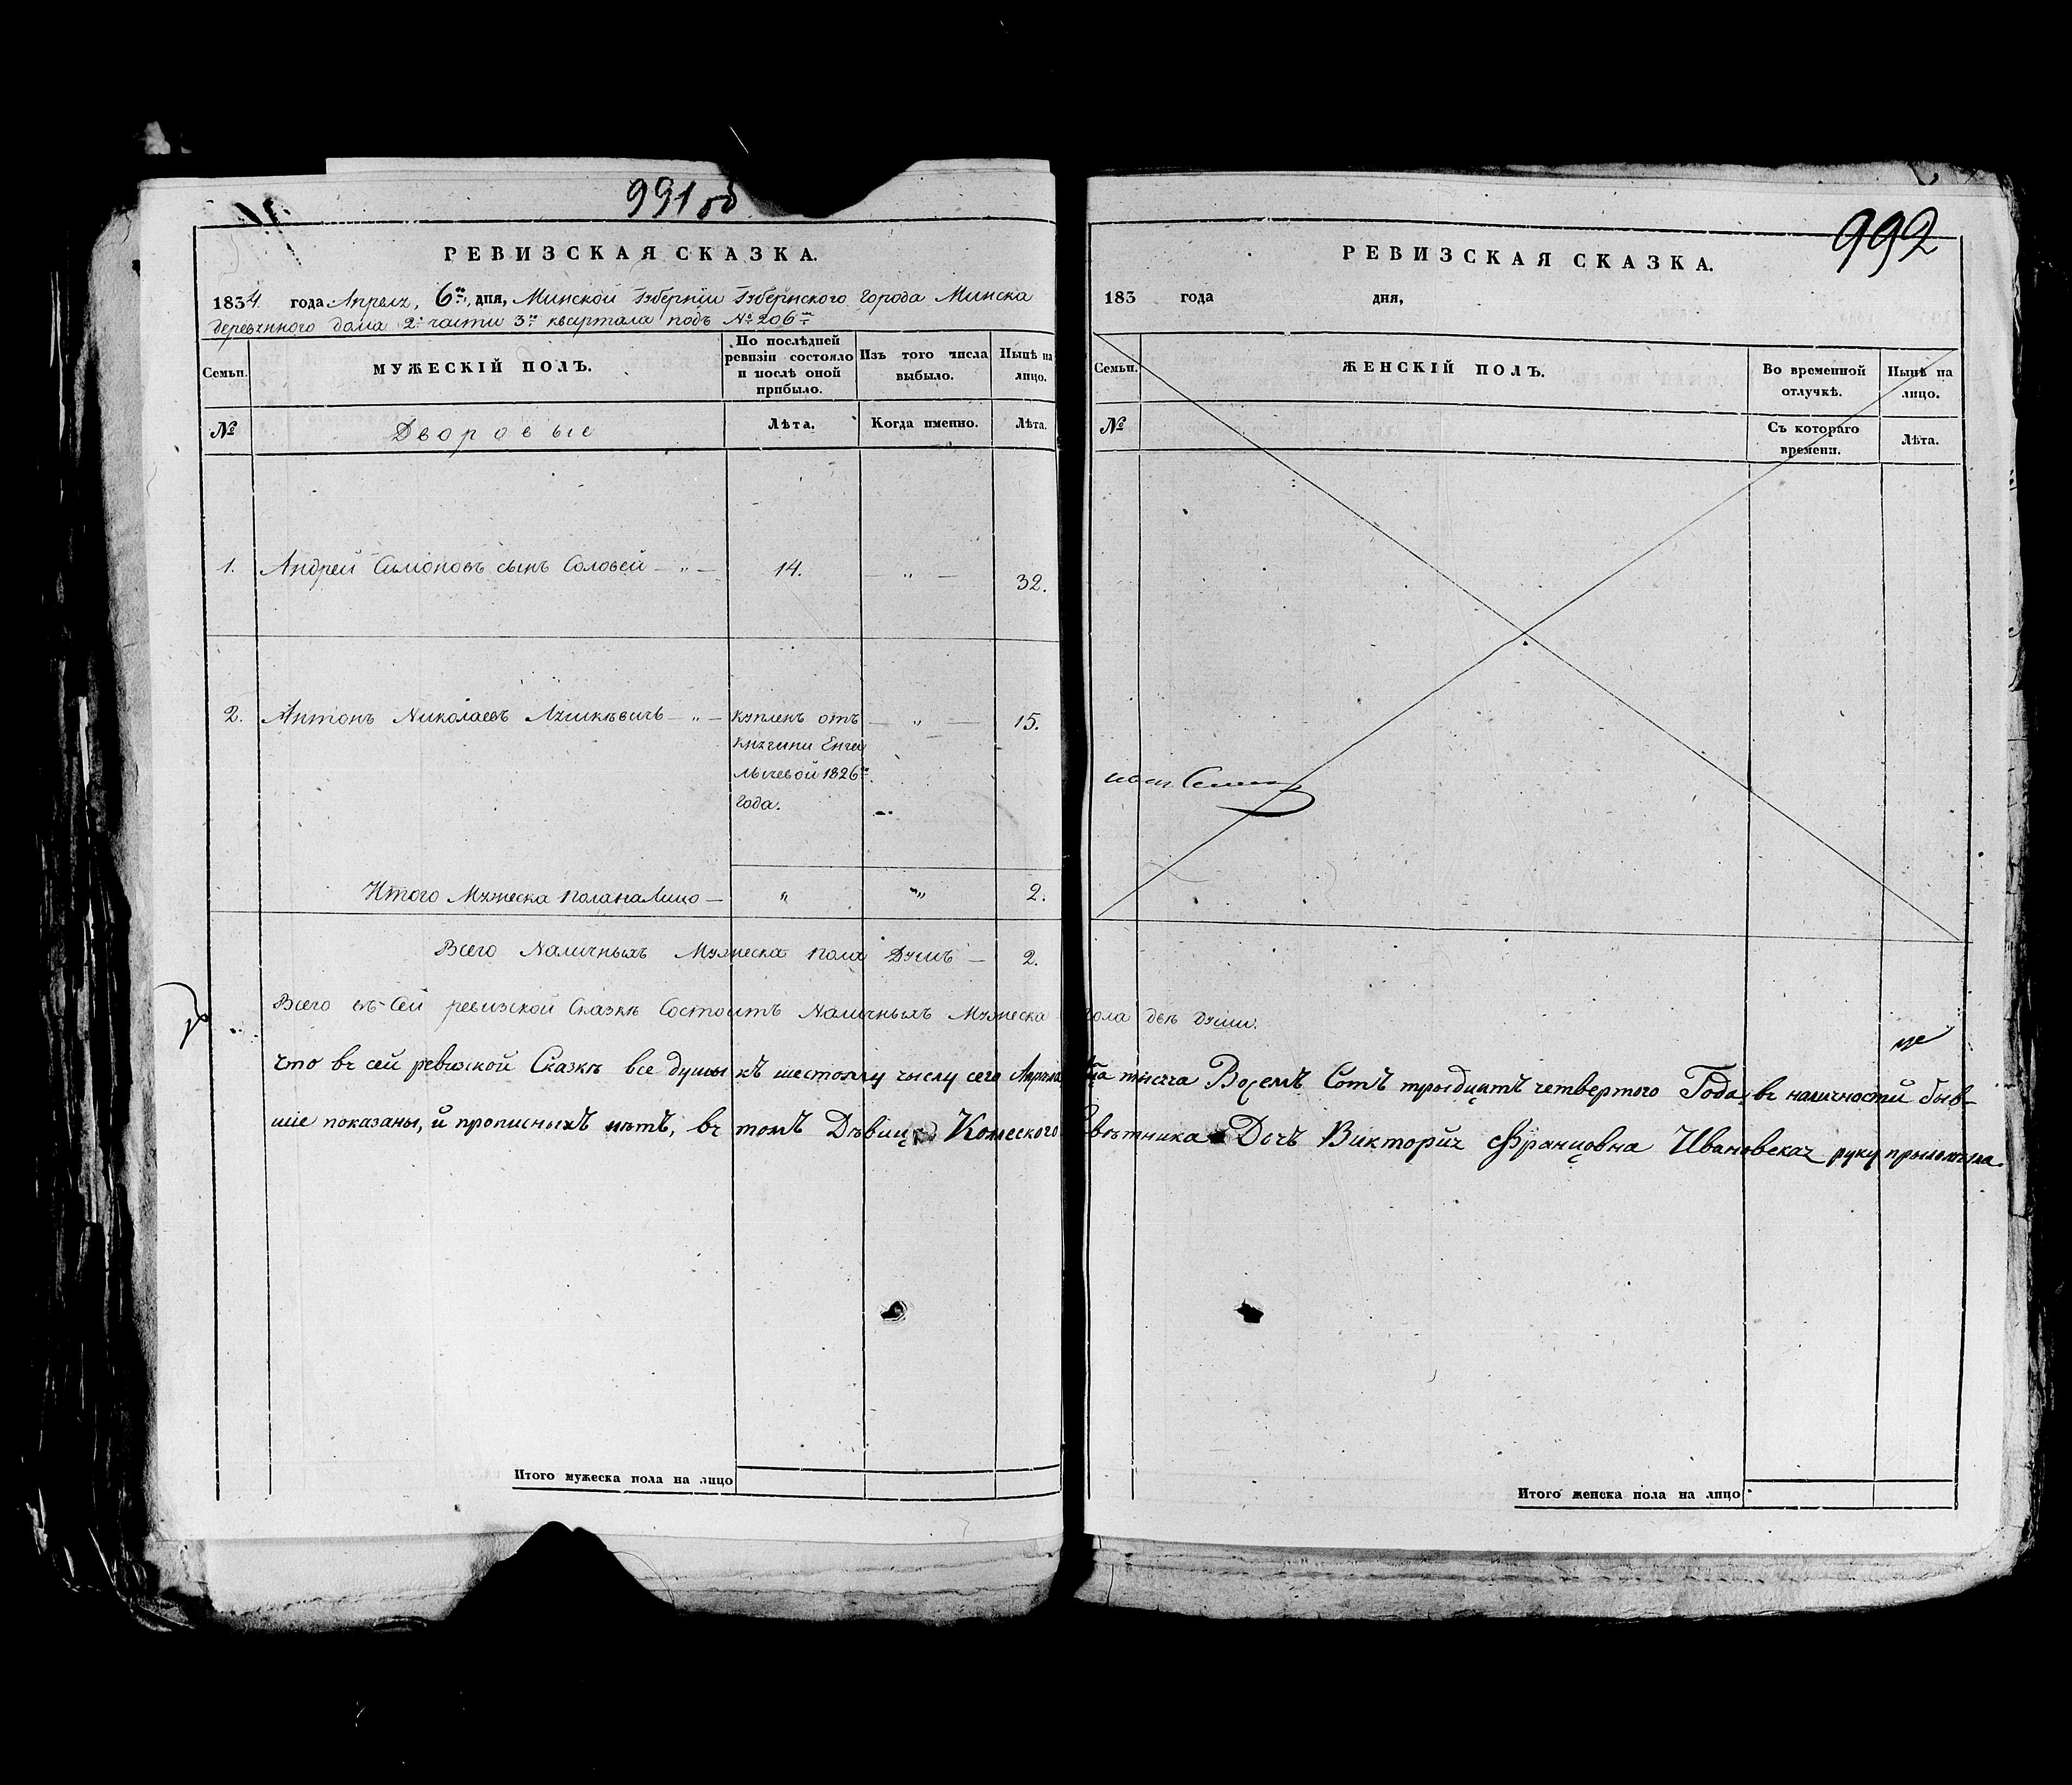 991 об
РЕВИЗСКАЯ СКАЗКА.
1834. года Апреля, 6го, дня, Минской Губерніи Губернского города Минска
деревянного дома 2й части 3го квартала подъ № 206м
Семьи.
МУЖЕСКІЙ ПОЛЪ.
По послѣдней ревизіи состояло и послѣ оной прибыло.
Изъ того числа выбыло.
Нынѣ на лицо.
№
Дворовые
Лѣта.
Когда именно.
Лѣта.
1. Андрей Симоновъ сынъ Соловей — „ — 14. — „ — 32.
2. Антонъ Николаевъ — „ — купленъ отъ — „ — 15.
княгини Енга
лычевой 1826го
года.
Итого Мужеска пола на Лицо — „ „ 2.
Всего Наличныхъ Мужеска пола Душъ — 2.
Всего въ Сей ревизской Сказкѣ Состоитъ Наличныхъ Мужеска пола двѣ души.
Что въ сей ревизской Сказкѣ все душы къ шестому числу сего Апреля тысяча Восемъ Сотъ трыдцатъ четвертого Года, въ наличности быв-
шіе показаны, и прописныхъ нѣтъ, въ томъ Дѣвица Колеского Совѣтника Дочъ Викторія Францовна Ивановская руку прыложыла.
Итого мужеска пола на лицо
992
РЕВИЗСКАЯ СКАЗКА.
183 года дня,
Семьи.
ЖЕНСКІЙ ПОЛЪ.
Во временной отлучкѣ.
Нынѣ на лицо.
№
Съ котораго времени.
Лѣта.
Итого женска пола на лицо